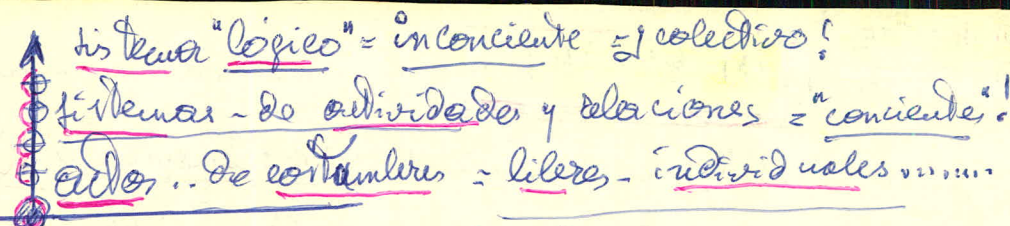 sistema "lógico" = inconciente = y colectivo!
sistemas - de actividades y relaciones = "concientes"!
actos .. de costumbres = libres - individuales .......